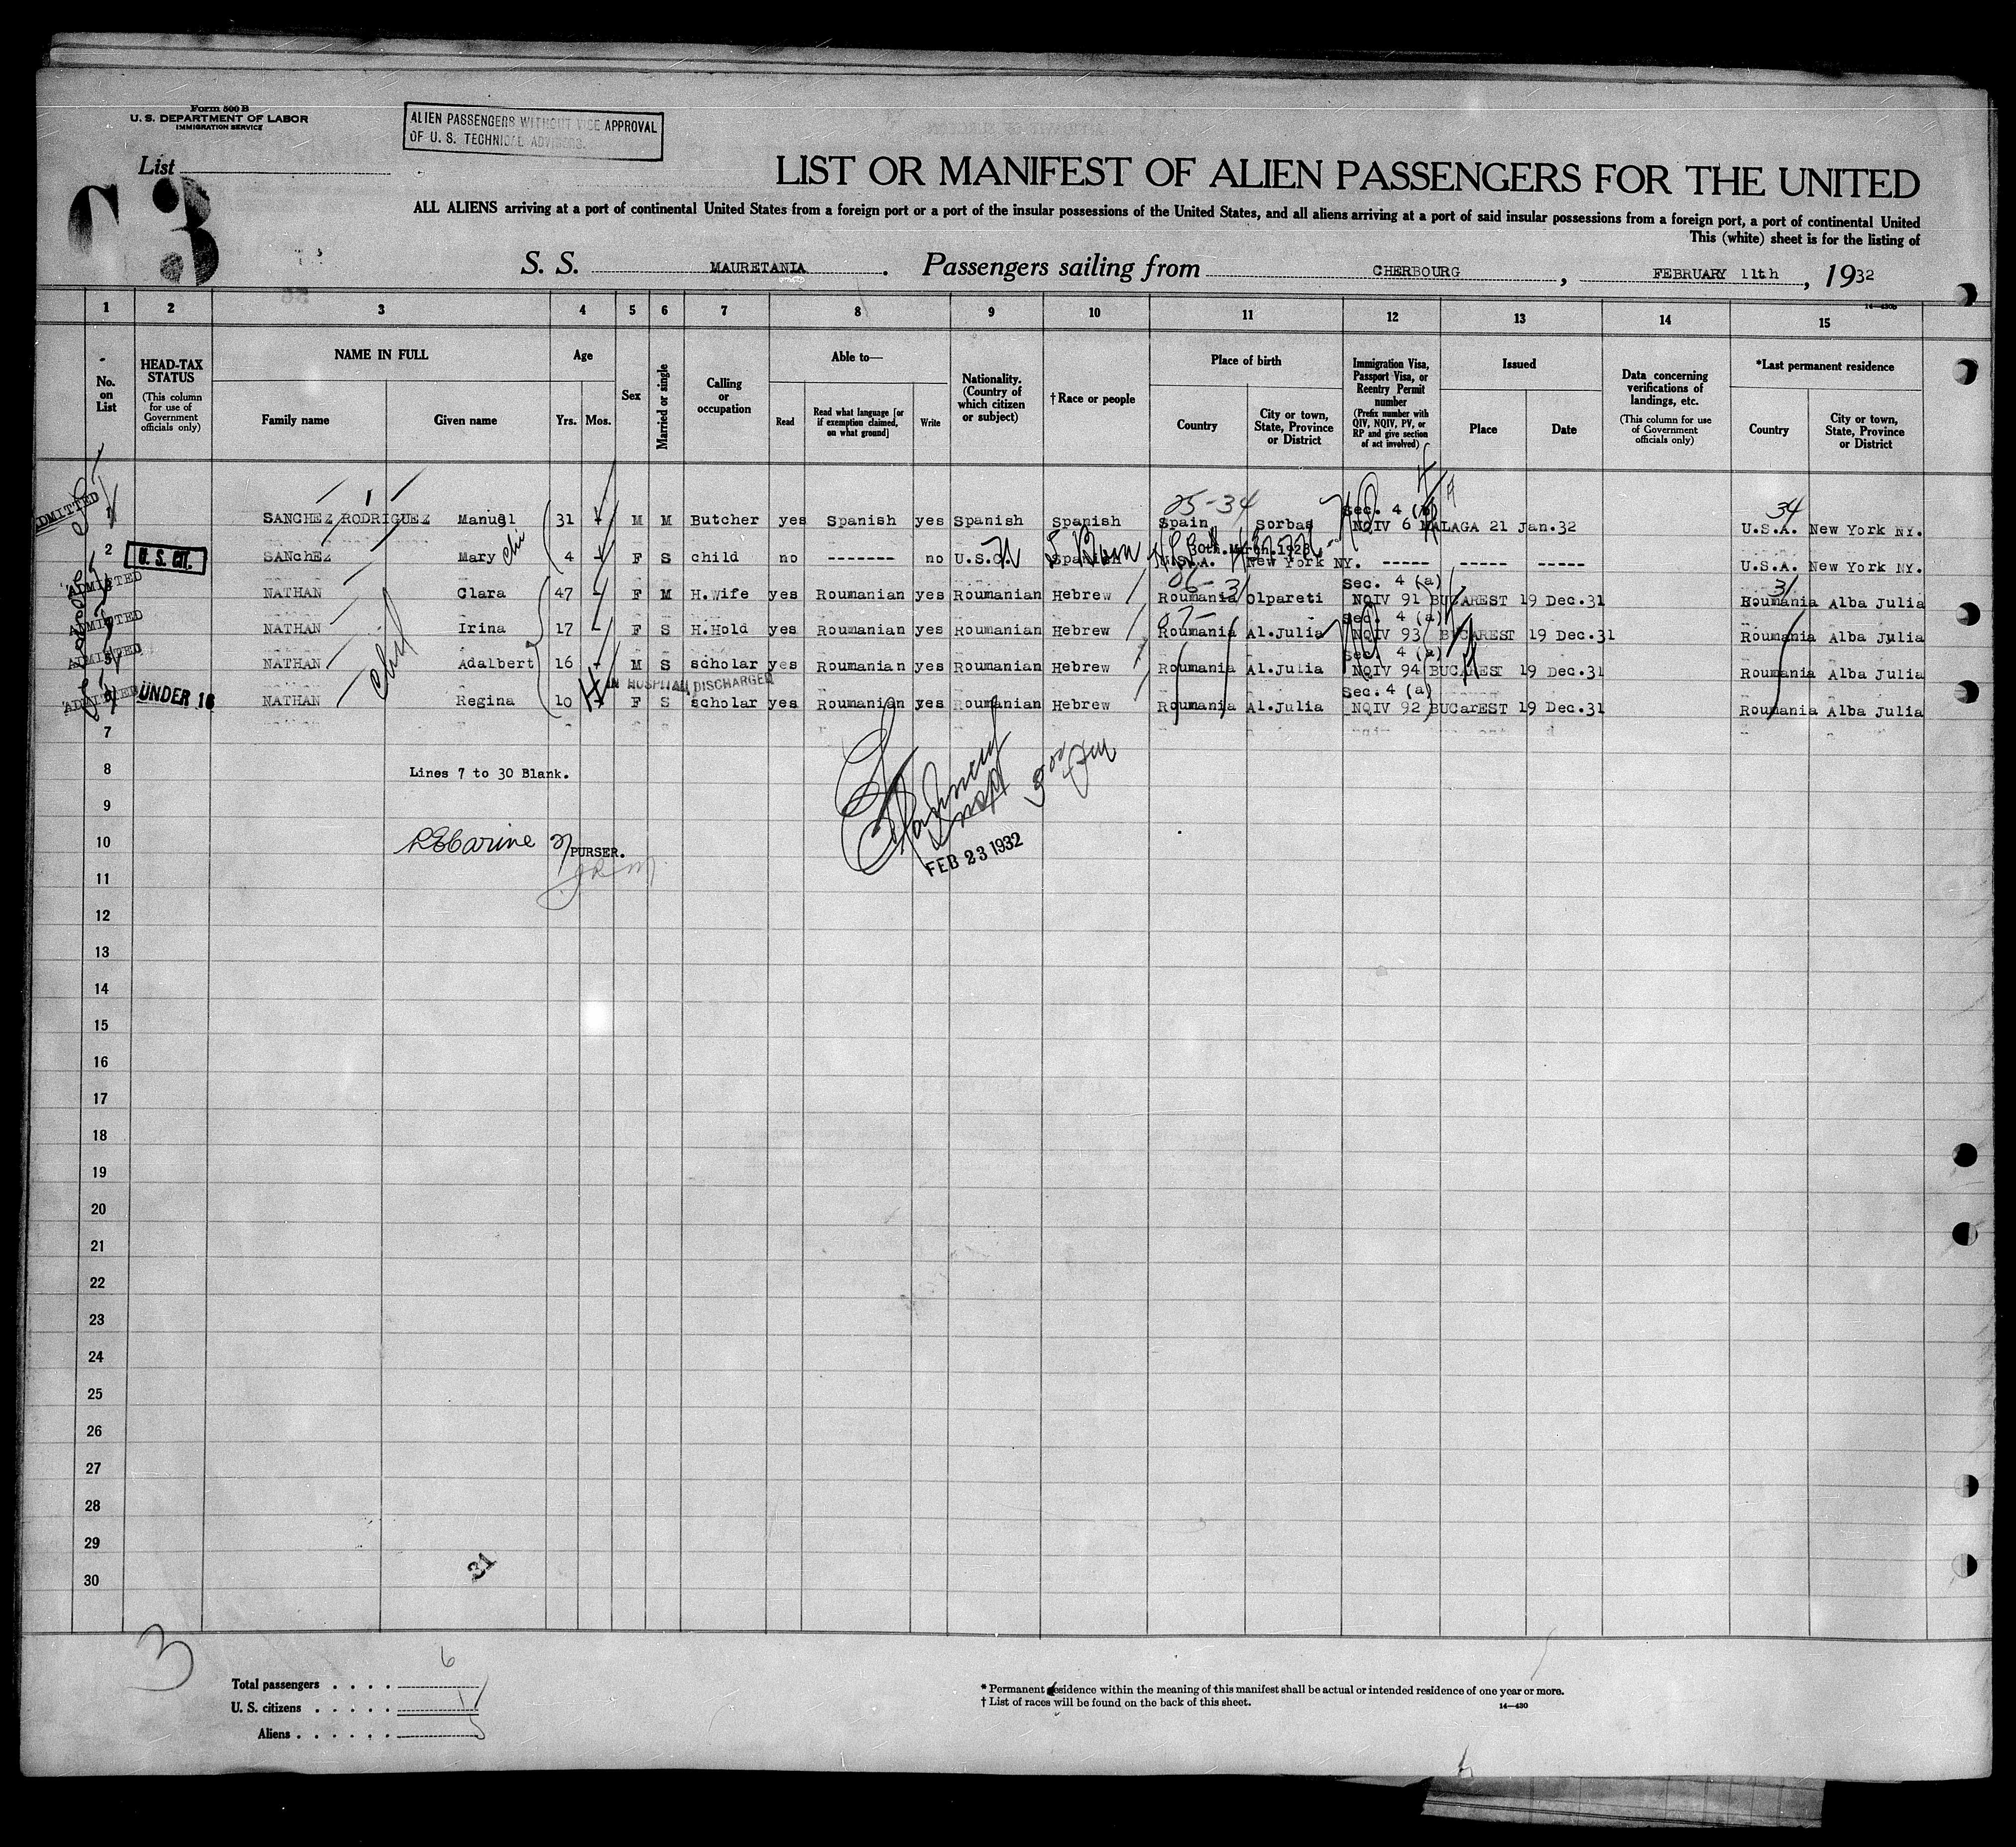 Form 500 B
U. S. DEPARTMENT OF LABOR
IMMIGRATION SERVICE
ALIEN PASSENGERS WITHOUT VICE APPROVAL
OF U. S. TECHNICAL ADVISERS.
List
C 3
LIST OR MANIFEST OF ALIEN PASSENGERS FOR THE UNITED
ALL ALIENS arriving at a port of continental United States from a foreign port or a port of the insular possessions of the United States, and all aliens arriving at a port of said insular possessions from a foreign port, a port of continental United
This (white) sheet is for the listing of
S. S. MAURETANIA. Passengers sailing from CHERBOURG, FEBRUARY 11th, 1932
14—430b
1 2 3 4 5 6 7 8 9 10 11 12 13 14 15
No. on List
HEAD-TAX STATUS (This column for use of Government officials only)
NAME IN FULL
Family name Given name
Age
Yrs. Mos.
Sex
Married or single
Calling or occupation
Able to—
Read Read what language [or if exemption claimed, on what ground] Write
Nationality. (Country of which citizen or subject)
†Race or people
Place of birth
Country City or town, State, Province or District
Immigration Visa, Passport Visa, or Reentry Permit number (Prefix number with QIV, NQIV, PV, or RP and give section of act involved)
Issued
Place Date
Data concerning verifications of landings, etc. (This column for use of Government officials only)
*Last permanent residence
Country City or town, State, Province or District
25-34 Sec. 4 (b) 34
ADMITTED 1 SANCHEZ RODRIGUEZ Manuel 31 M M Butcher yes Spanish yes Spanish Spanish Spain Sorbas NQIV 6 MALAGA 21 Jan.32 U.S.A. New York NY.
30th.March.1928
2 U. S. CIT. SANchEZ Mary 4 F S child no ------- no U.S.C. Spanish U.S.A. New York NY. ----- ----- ----- U.S.A. New York NY.
Sec. 4 (a) 31
ADMITTED 3 NATHAN Clara 47 F M H.wife yes Roumanian yes Roumanian Hebrew Roumania Olpareti NQIV 91 BUCAREST 19 Dec.31 Roumania Alba Julia
Sec. 4 (a)
ADMITTED 4 NATHAN Irina 17 F S H.Hold yes Roumanian yes Roumanian Hebrew Roumania Al.Julia NQIV 93 BUCAREST 19 Dec.31 Roumania Alba Julia
Sec. 4 (a)
ADMITTED 5 NATHAN Adalbert 16 M S scholar yes Roumanian yes Roumanian Hebrew Roumania Al.Julia NQIV 94 BUCAREST 19 Dec.31 Roumania Alba Julia
IN HOSPITAL DISCHARGED Sec.4 (a)
ADMITTED 6 UNDER 16 NATHAN Regina 10 F S scholar yes Roumanian yes Roumanian Hebrew Roumania Al.Julia NQIV 92 BUCarEST 19 Dec.31 Roumania Alba Julia
7
8 Lines 7 to 30 Blank.
9
10 PURSER.
FEB 23 1932
11
12
13
14
15
16
17
18
19
20
21
22
23
24
25
26
27
28
29
31
30
3
Total passengers . . . . 6
U. S. citizens . . . . . 1
Aliens . . . . . . 5
* Permanent residence within the meaning of this manifest shall be actual or intended residence of one year or more.
† List of races will be found on the back of this sheet.
14—430